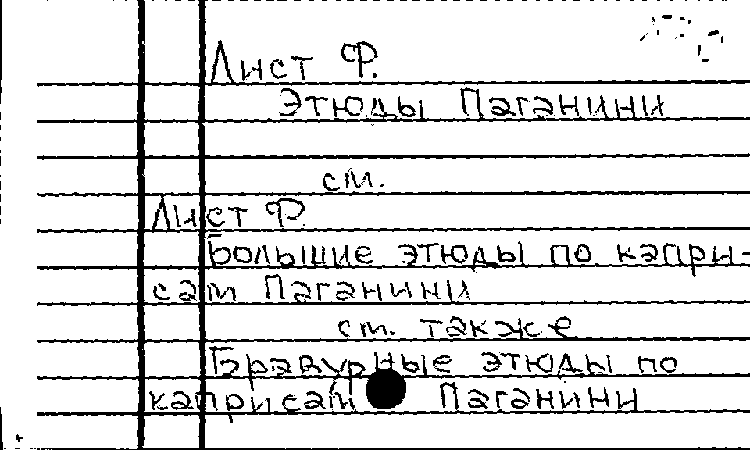 Лист Ф.
Этюды Паганини
см.
Лист Ф.
Большие этюды по капри-
сам Паганини
см. также
Бравурные этюды по
каприсам Паганини